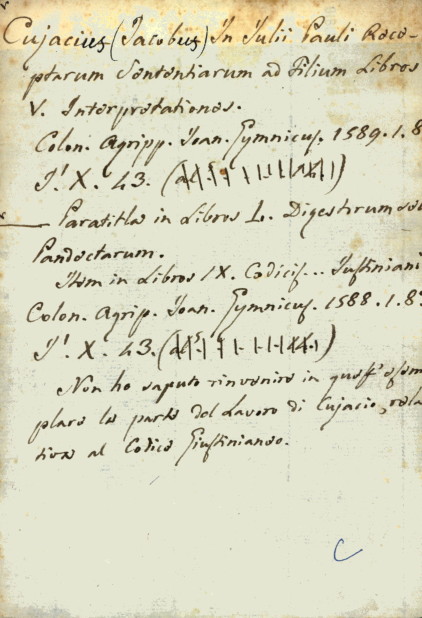 Cujacius (Jacobus) In Julii Pauli Rece-
ptarum Sententiarum ad Filium Libros
V. Interpretationes.
Colon. Agripp. Joan. Gymnicus. 1589. 1. 8
J! X. 43.
Paratitla in Libros L. Digestorum seu
Pandectarum.
Item in Libros IX. Codicis... Justiniani
Colon. Agrip. Joan. Gymnicus. 1588. 1. 8º
J! X. 43.
Non ho saputo rinvenire in quest'esem
plare la parte del Lavoro di Cujacio, rela
tiva al Codice Giustinianeo.
C